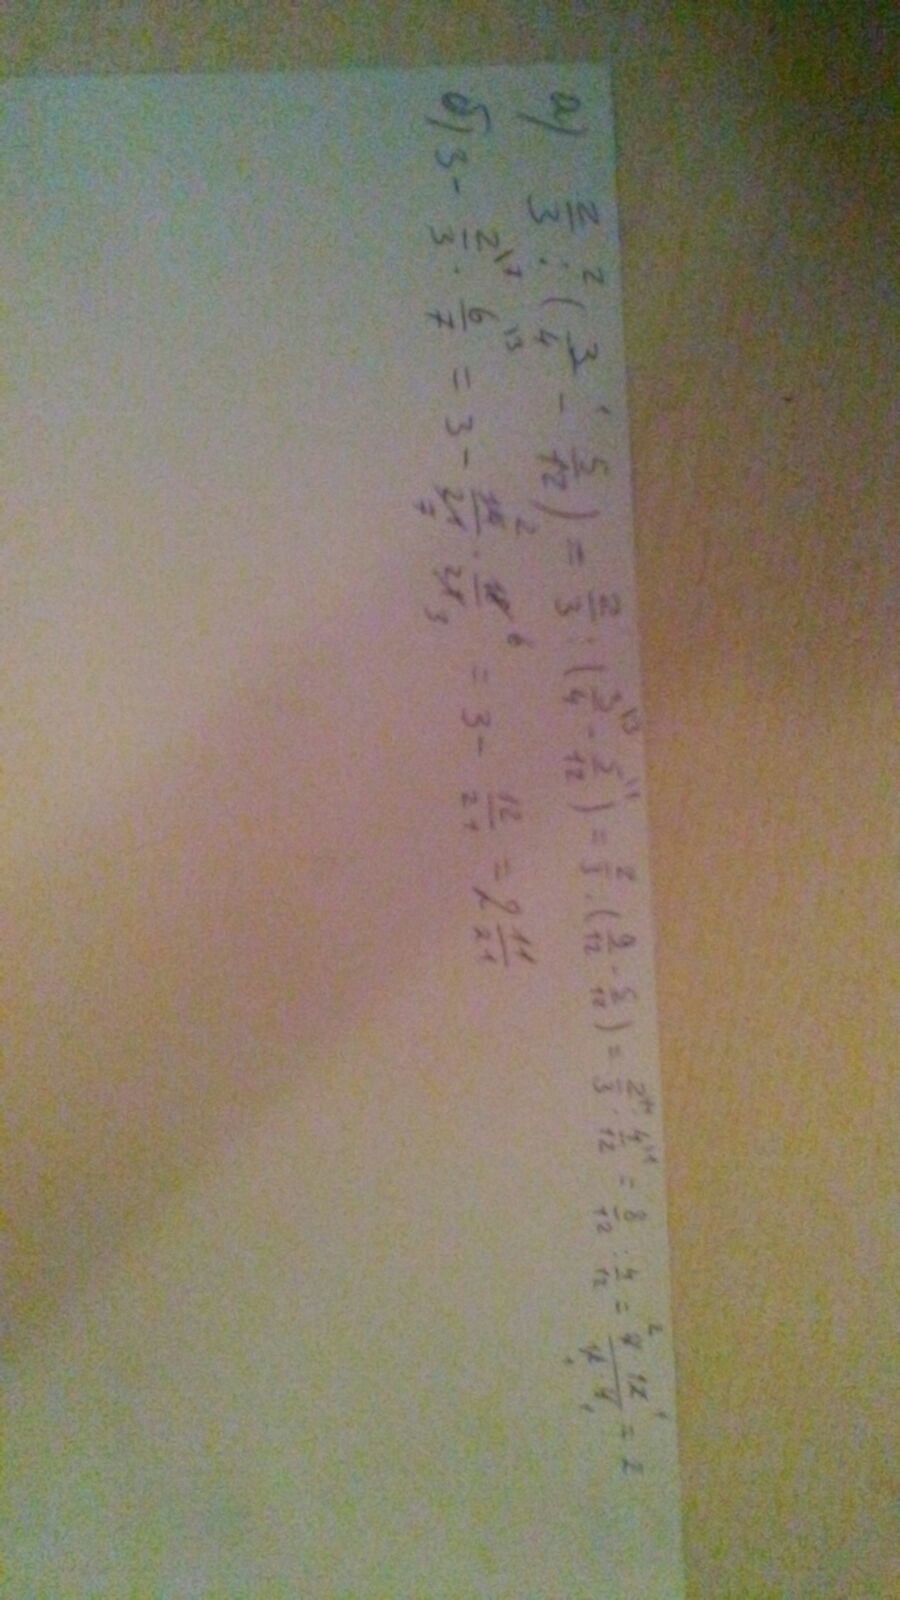 а) 2/3 : (3/4 - 5/12) = 2/3 : (3/4 - 5/12) = 2/3 : (9/12 - 5/12) = 2/3 : 4/12 = 8/12 : 4/12 = 8 · 12 / 12 · 4 = 2
б) 3 - 2/3 · 6/7 = 3 - 14/21 · 18/21 = 3 - 12/21 = 2 11/21